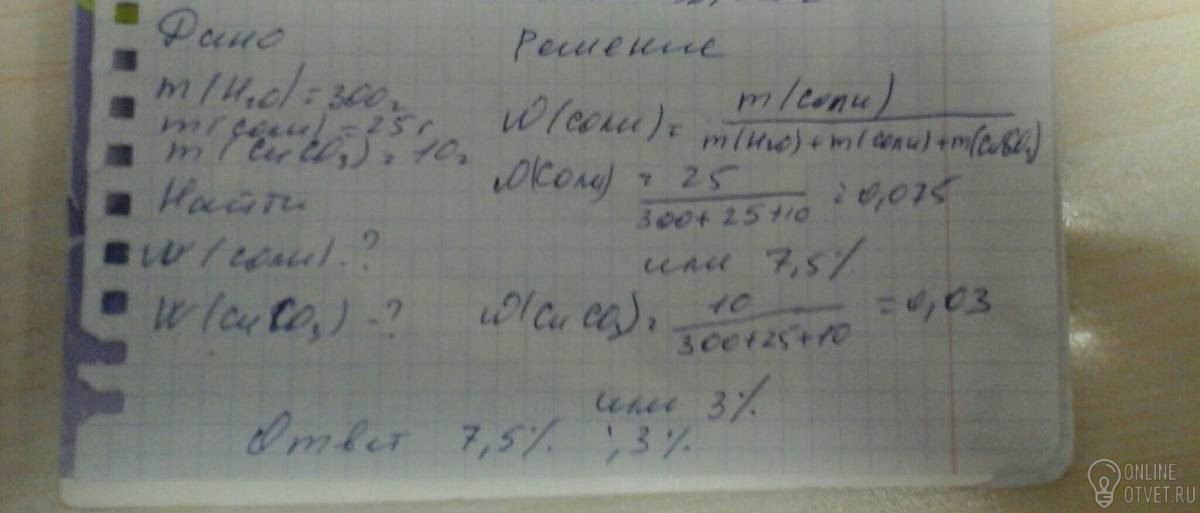 Дано
Решение
m(H₂O) = 300г
m(соли) = 25г
m(CuCO₃) = 10г
Найти
W(соли) - ?
W(CuCO₃) - ?
W(соли) = m(соли) / m(H₂O) + m(соли) + m(CuCO₃)
W(соли) = 25 / 300 + 25 + 10 = 0,075
или 7,5%
W(CuCO₃) = 10 / 300+25+10 = 0,03
или 3%
Ответ 7,5% ; 3%
ONLINE
OTVET.RU